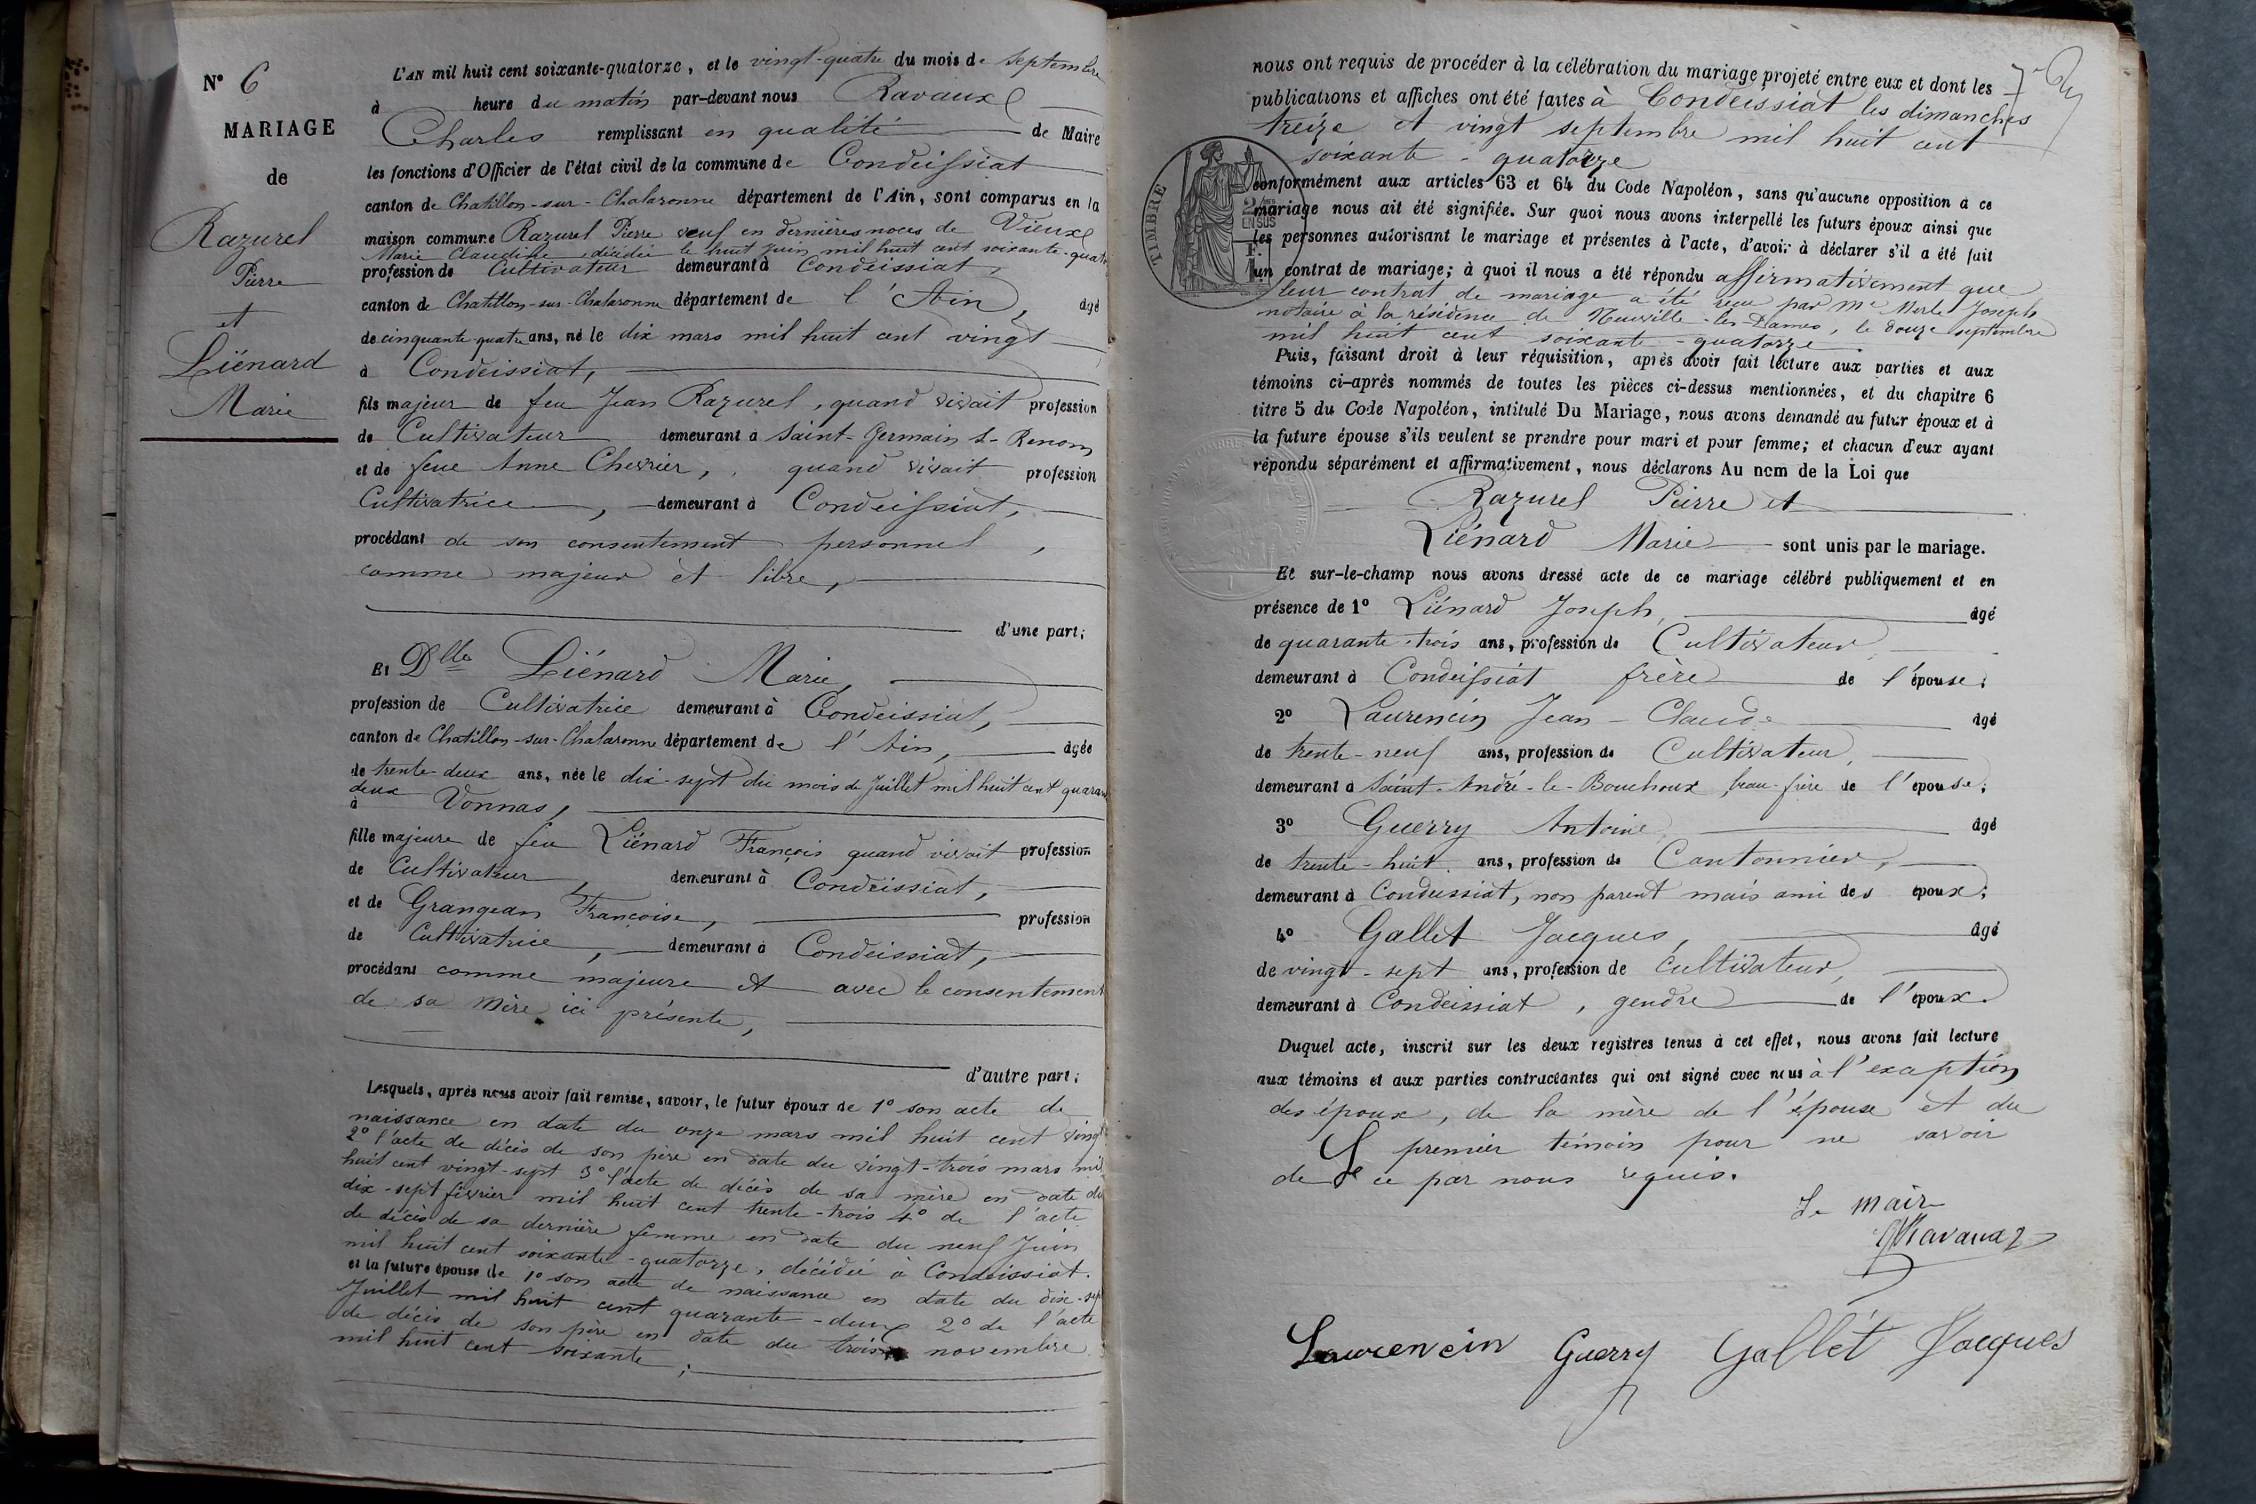 N° 6
MARIAGE
de
Razurel
Pierre
et
Liénard
Marie
L'AN mil huit cent soixante-quatorze, et le vingt-quatre du mois de Septembre
à heure du matin par-devant nous Ravaux
Charles remplissant en qualité de Maire
les fonctions d'Officier de l'état civil de la commune de Condeissiat
canton de Chatillon-sur-Chalaronne département de l'Ain, sont comparus en la
maison commune Razurel Pierre veuf en dernières noces de Vieux
Marie Claudine, décédée le huit Juin mil huit cent soixante-quatorze
profession de Cultivateur demeurant à Condeissiat,
canton de Chatillon-sur-Chalaronne département de l'Ain, âgé
de cinquante quatre ans, né le dix mars mil huit cent vingt
à Condeissiat,
fils majeur de feu Jean Razurel, quand vivait profession
de Cultivateur demeurant à Saint-Germain s- Renom
et de feue Anne Chevrier, quand vivait profession
Cultivatrice, demeurant à Condeissiat,
procédant de son consentement personnel,
comme majeur et libre,
d'une part;
Et Dlle Liénard Marie,
profession de Cultivatrice demeurant à Condeissiat,
canton de Chatillon-sur-Chalaronne département de l'Ain, âgée
de trente-deux ans, née le dix-sept du mois de Juillet mil huit cent quarante
deux
à Vonnas,
fille majeure de feu Liénard François quand vivait profession
de Cultivateur, demeurant à Condeissiat,
et de Grangean Françoise, profession
de Cultivatrice, demeurant à Condeissiat,
procédant comme majeure et avec le consentement
de sa mère ici présente,
d'autre part;
Lesquels, après nous avoir fait remise, savoir, le futur époux de 1° son acte de
naissance en date du onze mars mil huit cent vingt
2° l'acte de décès de son père en date du vingt-trois mars mil
huit cent vingt-sept 3° l'acte de décès de sa mère en date du
dix-sept février mil huit cent trente-trois 4° de l'acte
de décès de sa dernière femme en date du neuf Juin
mil huit cent soixante-quatorze, décédée à Condeissiat.
et la future épouse de 1° son acte de naissance en date du dix-sept
Juillet mil huit cent quarante-deux 2° de l'acte
de décès de son père en date du trois novembre
mil huit cent soixante;
nous ont requis de procéder à la célébration du mariage projeté entre eux et dont les
publications et affiches ont été faites à Condeissiat les dimanches
treize et vingt septembre mil huit cent
soixante-quatorze
TIMBRE
2/10mes EN SUS
conformément aux articles 63 et 64 du Code Napoléon, sans qu'aucune opposition à ce
mariage nous ait été signifiée. Sur quoi nous avons interpellé les futurs époux ainsi que
les personnes autorisant le mariage et présentes à l'acte, d'avoir à déclarer s'il a été fait
un contrat de mariage; à quoi il nous a été répondu affirmativement que
leur contrat de mariage a été reçu par Me Merle Joseph
notaire à la résidence de Neuville-les-Dames, le douze septembre
mil huit cent soixante-quatorze.
Puis, faisant droit à leur réquisition, après avoir fait lecture aux parties et aux
témoins ci-après nommés de toutes les pièces ci-dessus mentionnées, et du chapitre 6
titre 5 du Code Napoléon, intitulé Du Mariage, nous avons demandé au futur époux et à
la future épouse s'ils veulent se prendre pour mari et pour femme; et chacun d'eux ayant
répondu séparément et affirmativement, nous déclarons Au nom de la Loi que
Razurel Pierre et
Liénard Marie sont unis par le mariage.
Et sur-le-champ nous avons dressé acte de ce mariage célébré publiquement et en
présence de 1° Liénard Joseph, âgé
de quarante-trois ans, profession de Cultivateur,
demeurant à Condeissiat frère de l'épouse;
2° Laurencin Jean-Claude âgé
de trente-neuf ans, profession de Cultivateur,
demeurant à Saint-André-le-Bouchoux, beau-frère de l'épouse;
3° Guerry Antoine, âgé
de trente-huit ans, profession de Cantonnier,
demeurant à Condeissiat, non parent mais ami des époux;
4° Gallet Jacques, âgé
de vingt-sept ans, profession de Cultivateur,
demeurant à Condeissiat, gendre de l'époux.
Duquel acte, inscrit sur les deux registres tenus à cet effet, nous avons fait lecture
aux témoins et aux parties contractantes qui ont signé avec nous à l'exception
des époux, de la mère de l'épouse et du
premier témoin pour ne savoir
de ce par nous requis.
Le maire
Ravaux
Laurencin Guerry Gallét Jacques